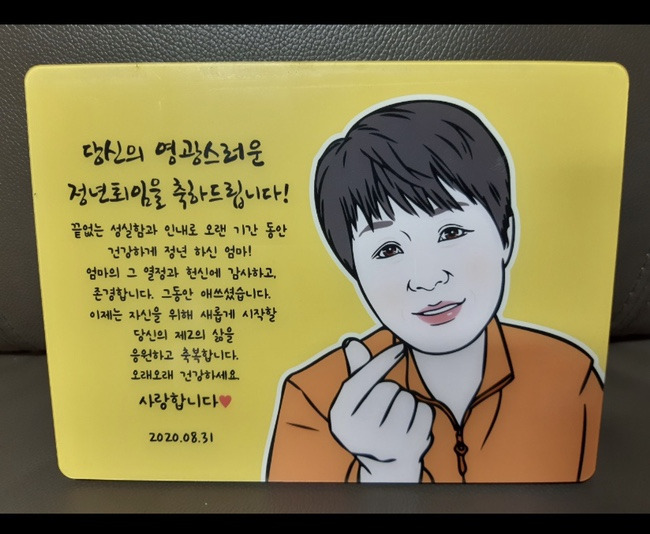 당신의 영광스러운
정년퇴임을 축하드립니다!
끝없는 성실함과 인내로 오랜 기간 동안
건강하게 정년 하신 엄마!
엄마의 그 열정과 헌신에 감사하고,
존경합니다. 그동안 애쓰셨습니다.
이제는 자신을 위해 새롭게 시작할
당신의 제2의 삶을
응원하고 축복합니다.
오래오래 건강하세요.
사랑합니다♥
2020.08.31